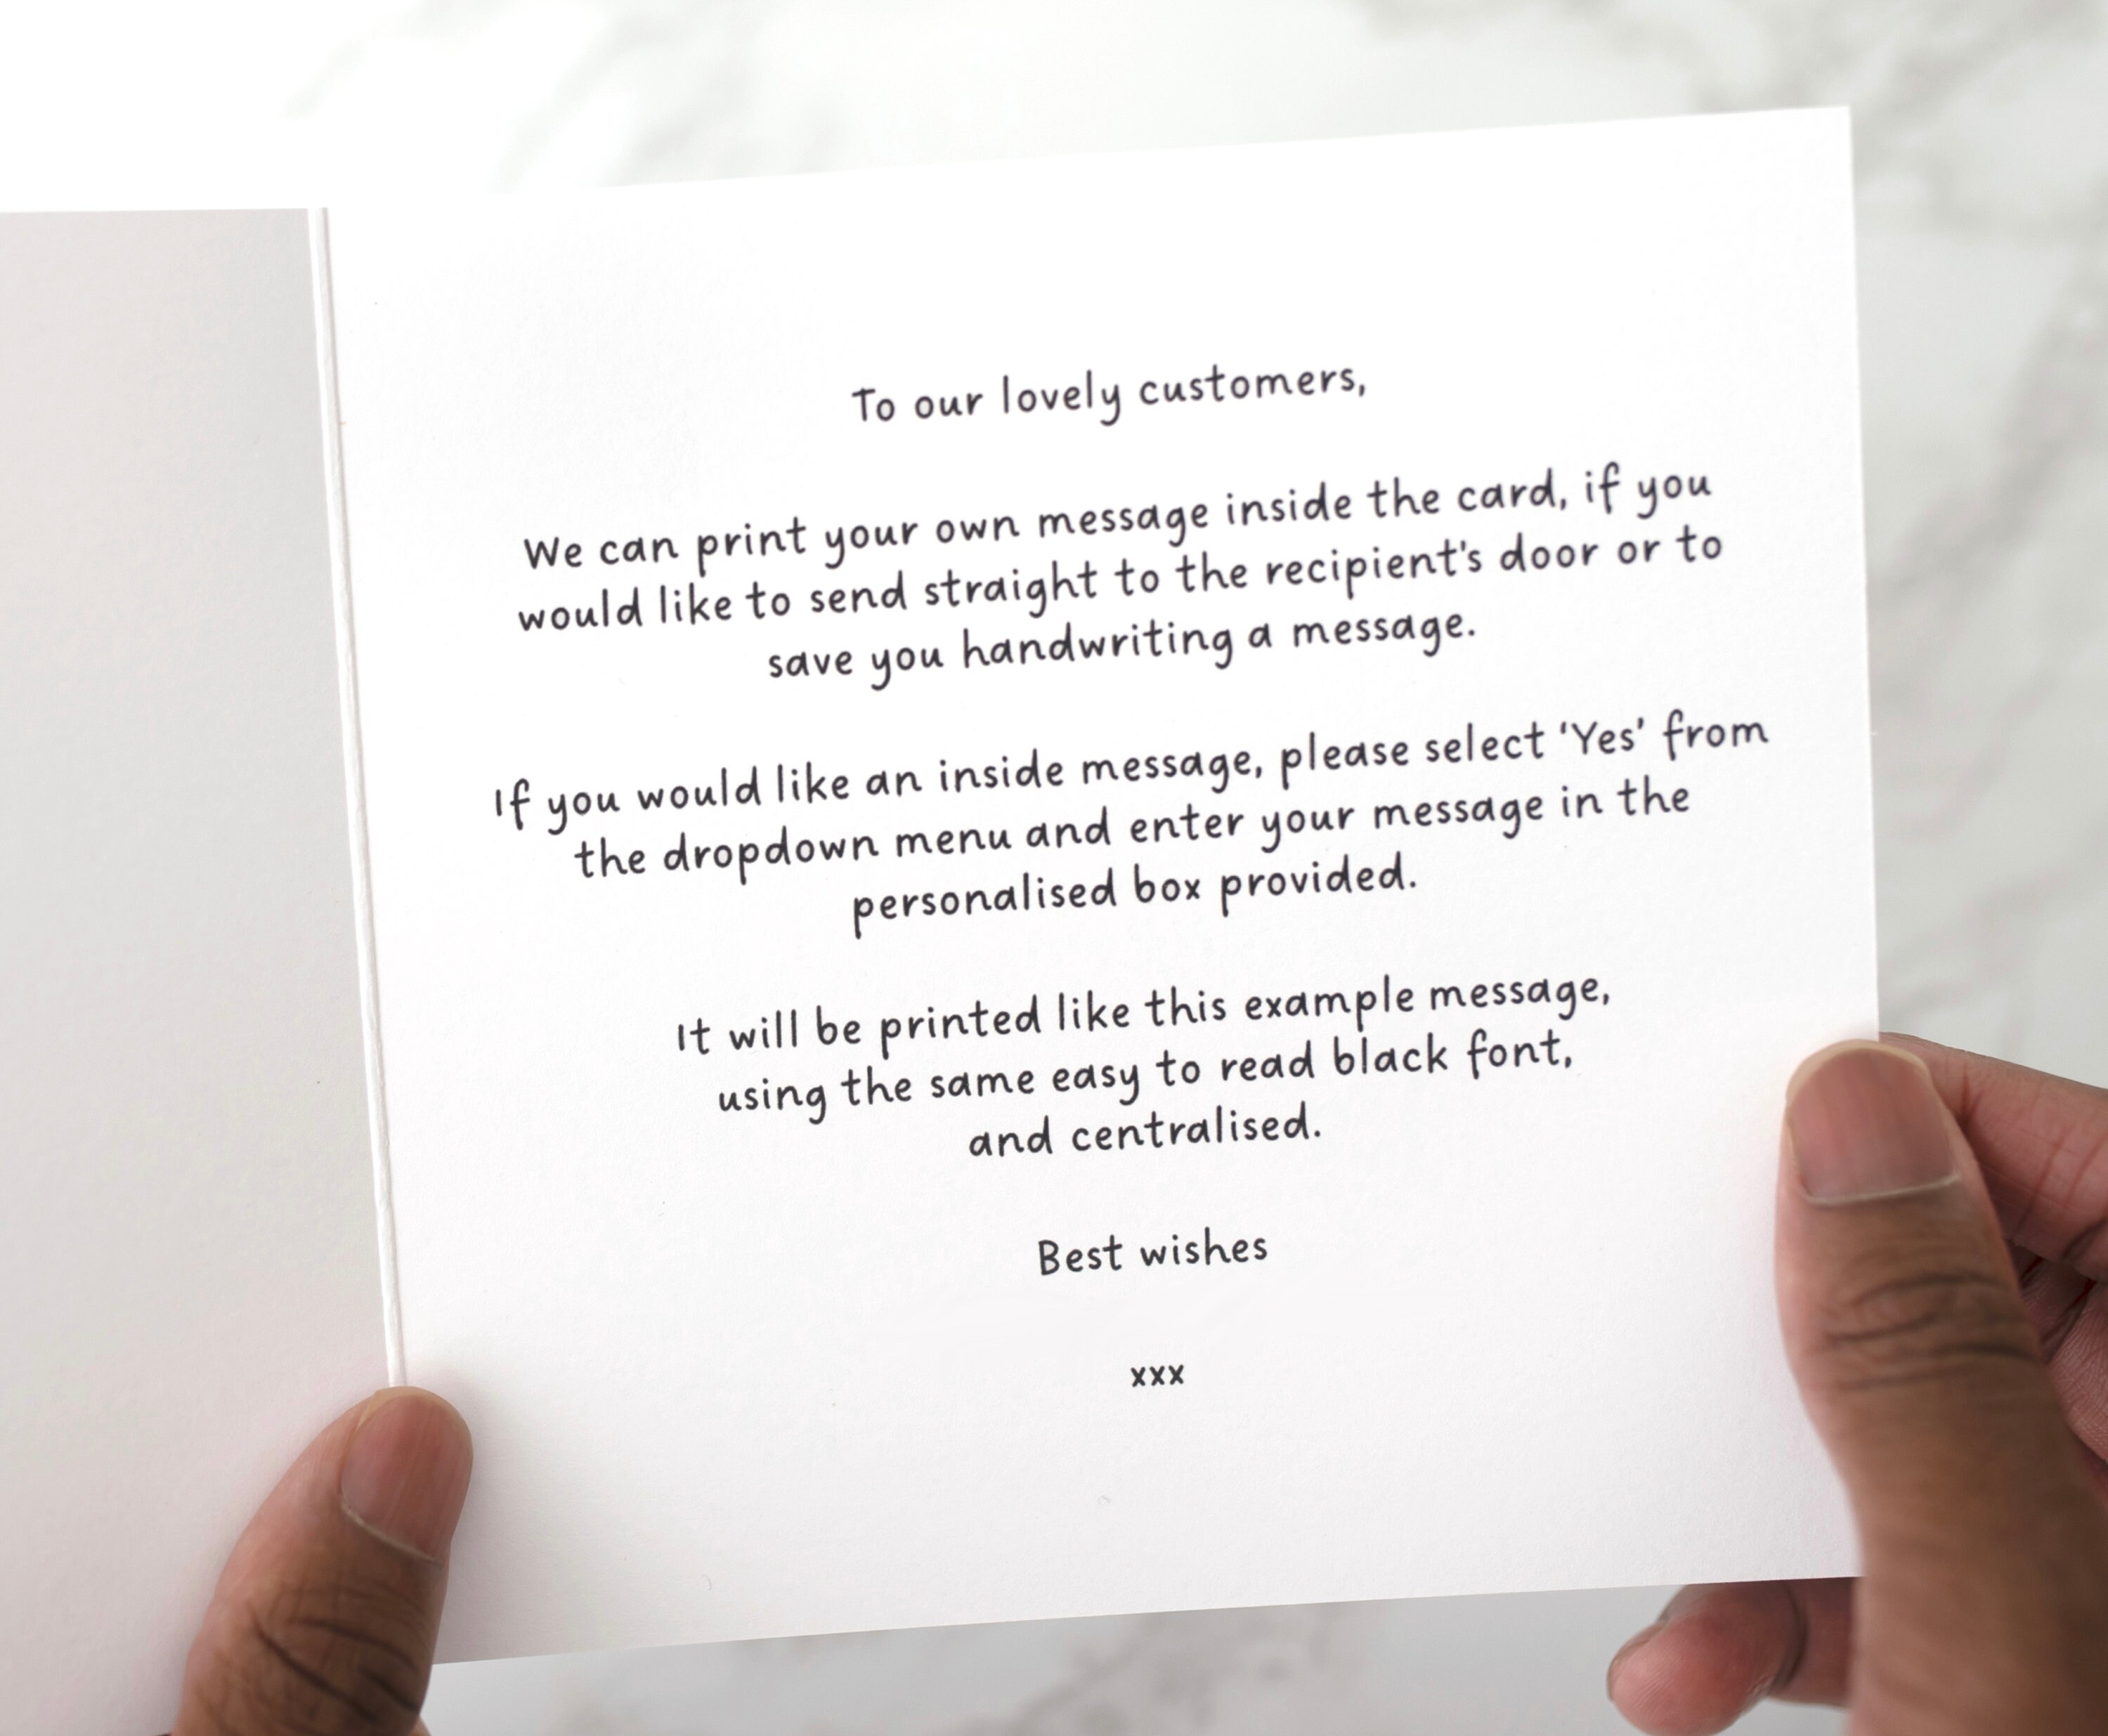 To our lovely customers,
We can print your own message inside the card, if you
would like to send straight to the recipient's door or to
save you handwriting a message.
If you would like an inside message, please select ‘Yes’ from
the dropdown menu and enter your message in the
personalised box provided.
It will be printed like this example message,
using the same easy to read black font,
and centralised.
Best wishes
xxx